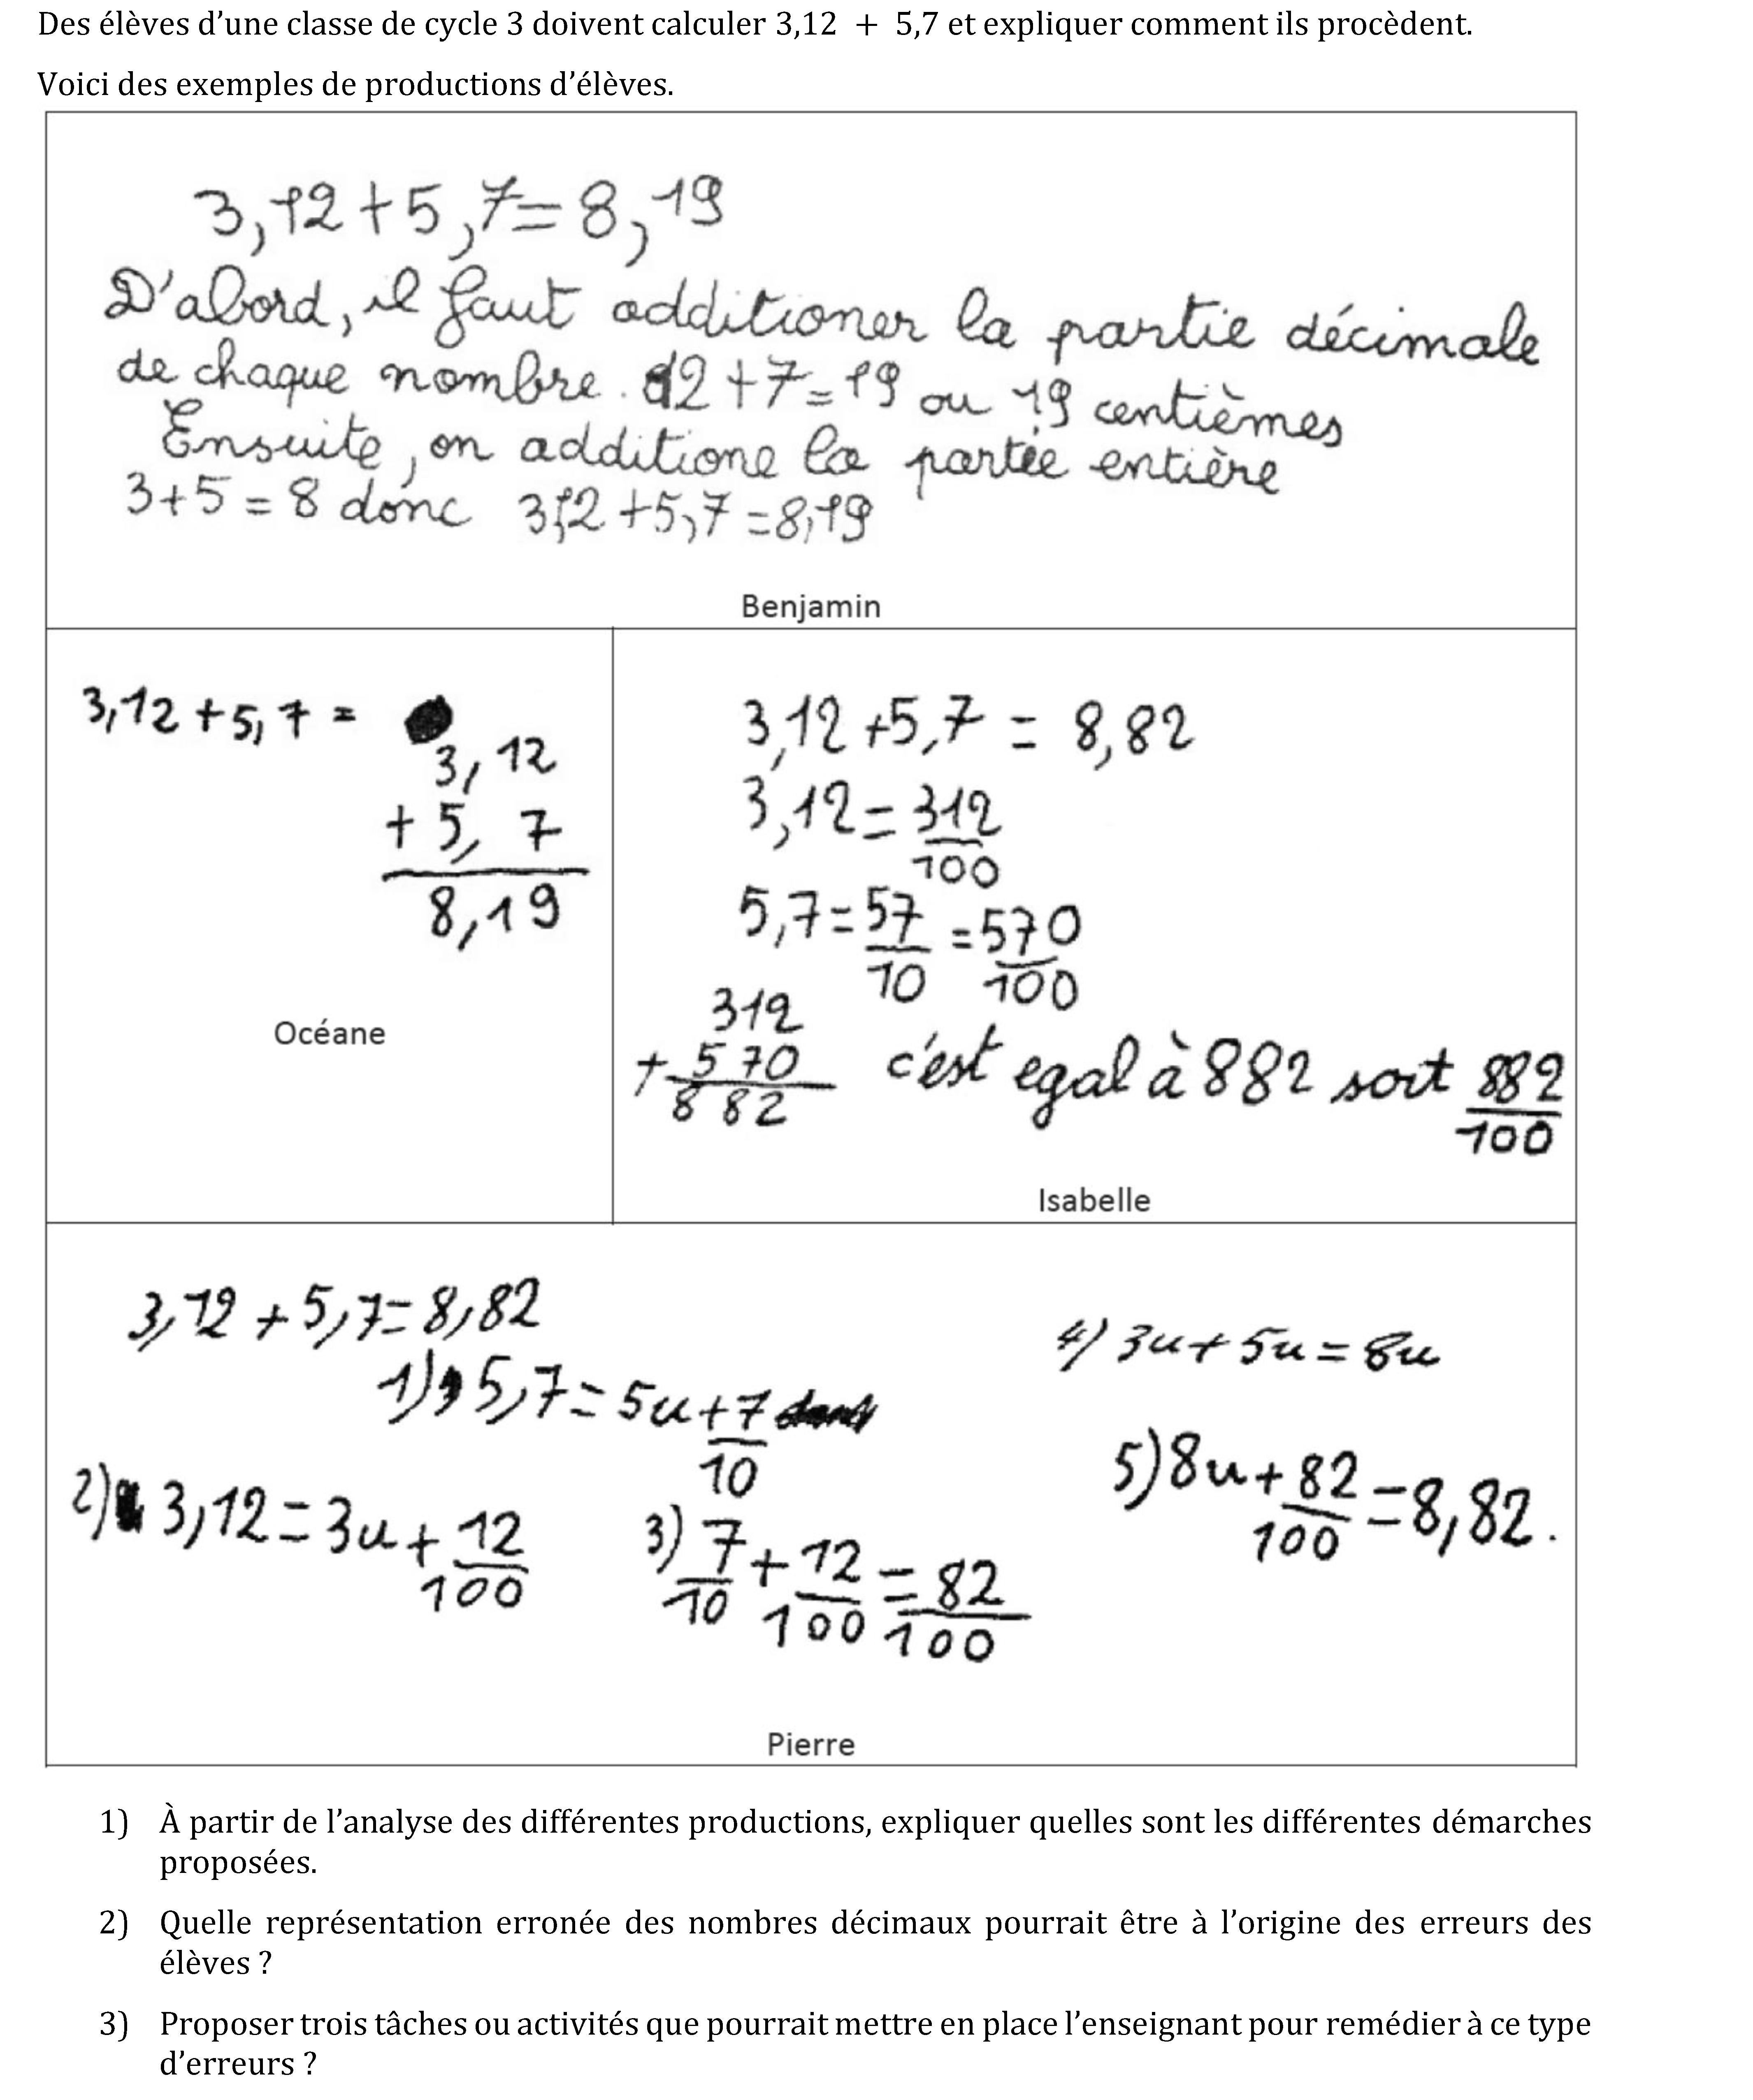 Des élèves d'une classe de cycle 3 doivent calculer 3,12 + 5,7 et expliquer comment ils procèdent.
Voici des exemples de productions d'élèves.
3,12 + 5,7 = 8,19
D'abord, il faut additioner la partie décimale
de chaque nombre. 12 + 7 = 19 ou 19 centièmes
Ensuite, on additione la partie entière
3 + 5 = 8 donc 3,12 + 5,7 = 8,19
Benjamin
3,12 + 5,7 =
3,12
+ 5, 7
8,19
Océane
3,12 + 5,7 = 8,82
3,12 = 312/100
5,7 = 57/10 = 570/100
312
+ 570
882
c'est egal à 882 soit 882/100
Isabelle
3,12 + 5,7 = 8,82
1) 5,7 = 5u + 7/10
2) 3,12 = 3u + 12/100
3) 7/10 + 12/100 = 82/100
4) 3u + 5u = 8u
5) 8u + 82/100 = 8,82.
Pierre
1) À partir de l'analyse des différentes productions, expliquer quelles sont les différentes démarches
proposées.
2) Quelle représentation erronée des nombres décimaux pourrait être à l'origine des erreurs des
élèves ?
3) Proposer trois tâches ou activités que pourrait mettre en place l'enseignant pour remédier à ce type
d'erreurs ?